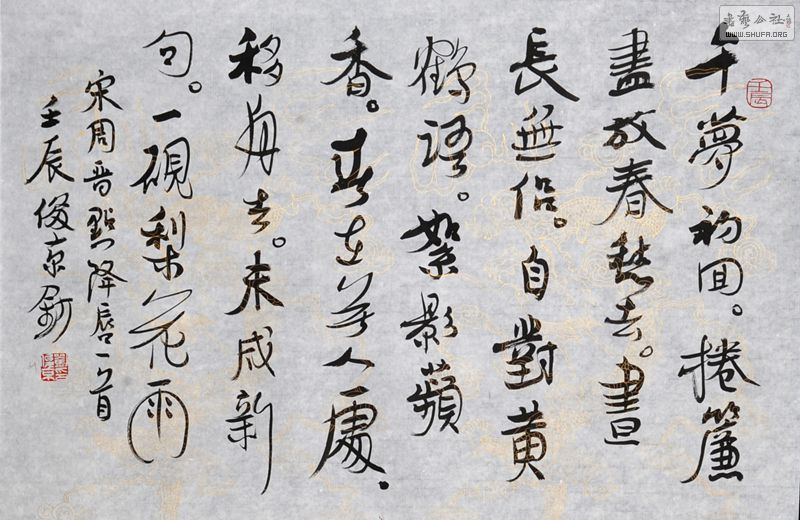 书艺公社
WWW.SHUFA.ORG
壬辰
午夢初回。捲簾
盡放春愁去。晝
長無侣。自對黄
鸝語。絮影蘋
香。春在无人處。
移舟去。未成新
句。一硯梨花雨
宋周晋點降唇一首
壬辰俊京